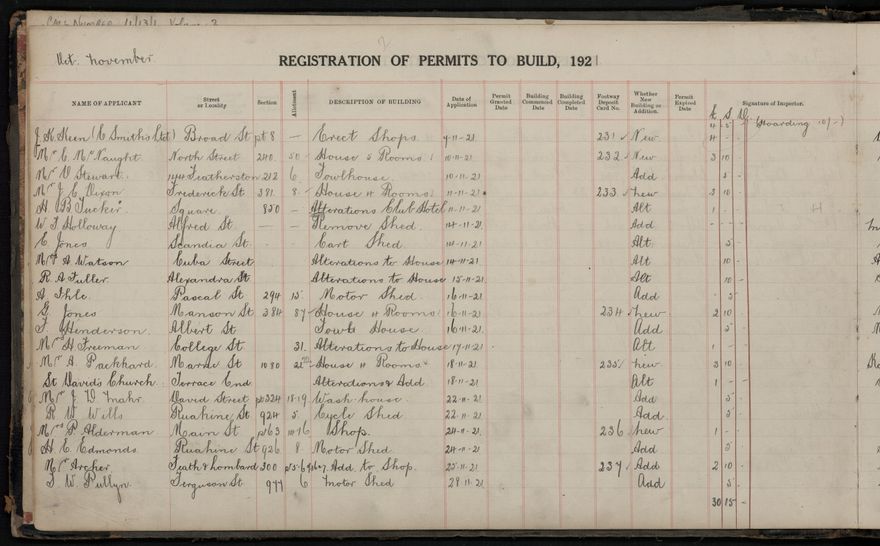 Oct. November.
REGISTRATION OF PERMITS TO BUILD, 1921
NAME OF APPLICANT Street or Locality Section Allotment DESCRIPTION OF BUILDING Date of Application Permit Granted Date Building Commenced Date Building Completed Date Footway Deposit Card No. Whether New Building or Addition. Permit Expired Date £ S D Signature of Inspector.
J K Keen (C Smith's Ltd) Broad St pt 8 — Erect Shops 9-11-21 231 New 4 - - Hoarding 10/-
Mr C McNaught North Street 240 50 House 5 Rooms 10-11-21 232 New 3 10
Mr V Stewart Featherston 212 6 Fowlhouse 10-11-21 Add 5 -
Mr J C Dixon Frederick St 381 8 House 4 Rooms 11-11-21 233 New 3 10
H B Tucker Square 850 — Alterations Club Hotel 11-11-21 Alt 1 - -
W T Holloway Alfred St — — Remove Shed 14-11-21 Add - - -
C Jones Scandia St - Cart Shed 14-11-21 Alt 5 -
Mrs A Watson Cuba Street Alterations to House 14-11-21 Alt 10 -
R A Fuller Alexandra St Alterations to House 15-11-21 Alt 10 -
A Ihle Pascal St 294 15 Motor Shed 16-11-21 Add 5
G Jones Manson St 384 87 House 4 Rooms 16-11-21 234 New 2 10
F Henderson Albert St Fowl House 16-11-21 Add 5
Mr H Freeman College St 31 Alterations to House 17-11-21 Alt 1 - -
Mr A Packhard Marne St 1080 House 4 Rooms 18-11-21 235 New 3 10
St David's Church Terrace End Alterations & Add 18-11-21 Alt 1 - -
Mr J D Mahr David Street pt 324 18-19 Wash house 22-11-21 Add 5
R W Wells Ruahine St 924 5 Cycle Shed 22-11-21 Add 5
Mrs P Alderman Main St pt 63 Shop 24-11-21 236 New 1 - -
H E Edmonds Ruahine St 926 8 Motor Shed 24-11-21 Add 5
Mr Archer Feath & Lombard 300 Add to Shop 25-11-21 237 Add 2 10
T W Pullyn Ferguson St 977 6 Motor Shed 29-11-21 Add 5 -
30 15 -